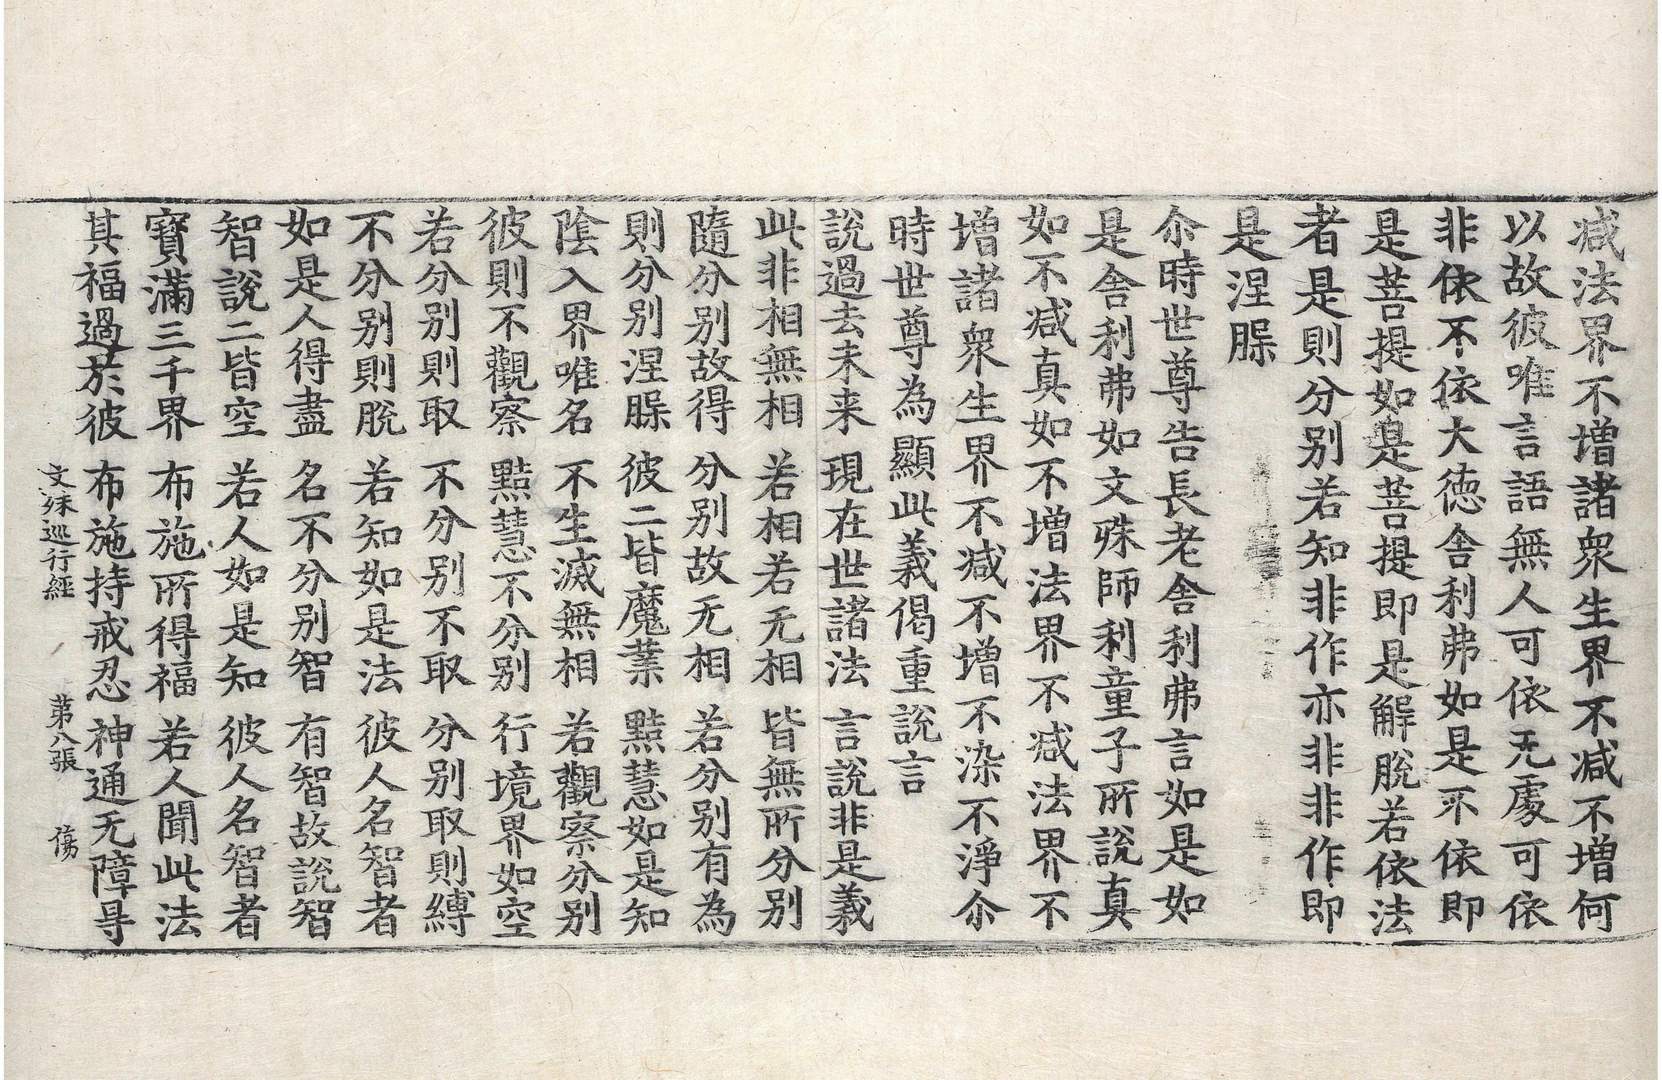 减法界不增諸衆生界不减不增何
以故彼唯言語無人可依无處可依
非依不依大德舍利弗如是不依即
是菩提如是菩提即是解脫若依法
者是則分别若知非作亦非非作即
是涅槃
尒時世尊告長老舍利弗言如是如
是舍利弗如文殊師利童子所說真
如不减真如不增法界不减法界不
增諸衆生界不减不增不染不淨尒
時世尊為顯此義偈重說言
說過去未来 現在世諸法 言說非是義
此非相無相 若相若无相 皆無所分别
隨分别故得 分别故无相 若分别有為
則分别涅槃 彼二皆魔業 黠慧如是知
陰入界唯名 不生滅無相 若觀察分别
彼則不觀察 黠慧不分别 行境界如空
若分别則取 不分别不取 分别取則縛
不分别則脫 若知如是法 彼人名智者
如是人得盡 名不分别智 有智故說智
智說二皆空 若人如是知 彼人名智者
寶滿三千界 布施所得福 若人聞此法
其福過於彼 布施持戒忍 神通无障㝵
文殊巡行經 苐八張 傷